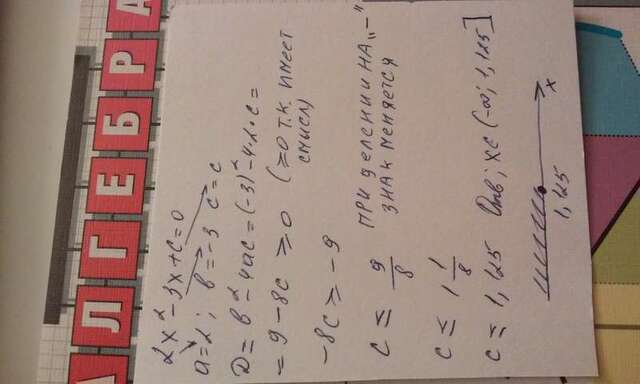 АЛГЕБРА
2x² - 3x + c = 0
a = 2 ; b = -3 c = c
D = b² - 4ac = (-3)² - 4·2·c =
= 9 - 8c ≥ 0 (≥0 т.к. имеет смысл)
-8c ≥ -9
c ≤ 9/8 при делении на „-" знак меняется
c ≤ 1 1/8
c ≤ 1,125 Отв; x∈(-∞; 1,125]
1,125 x